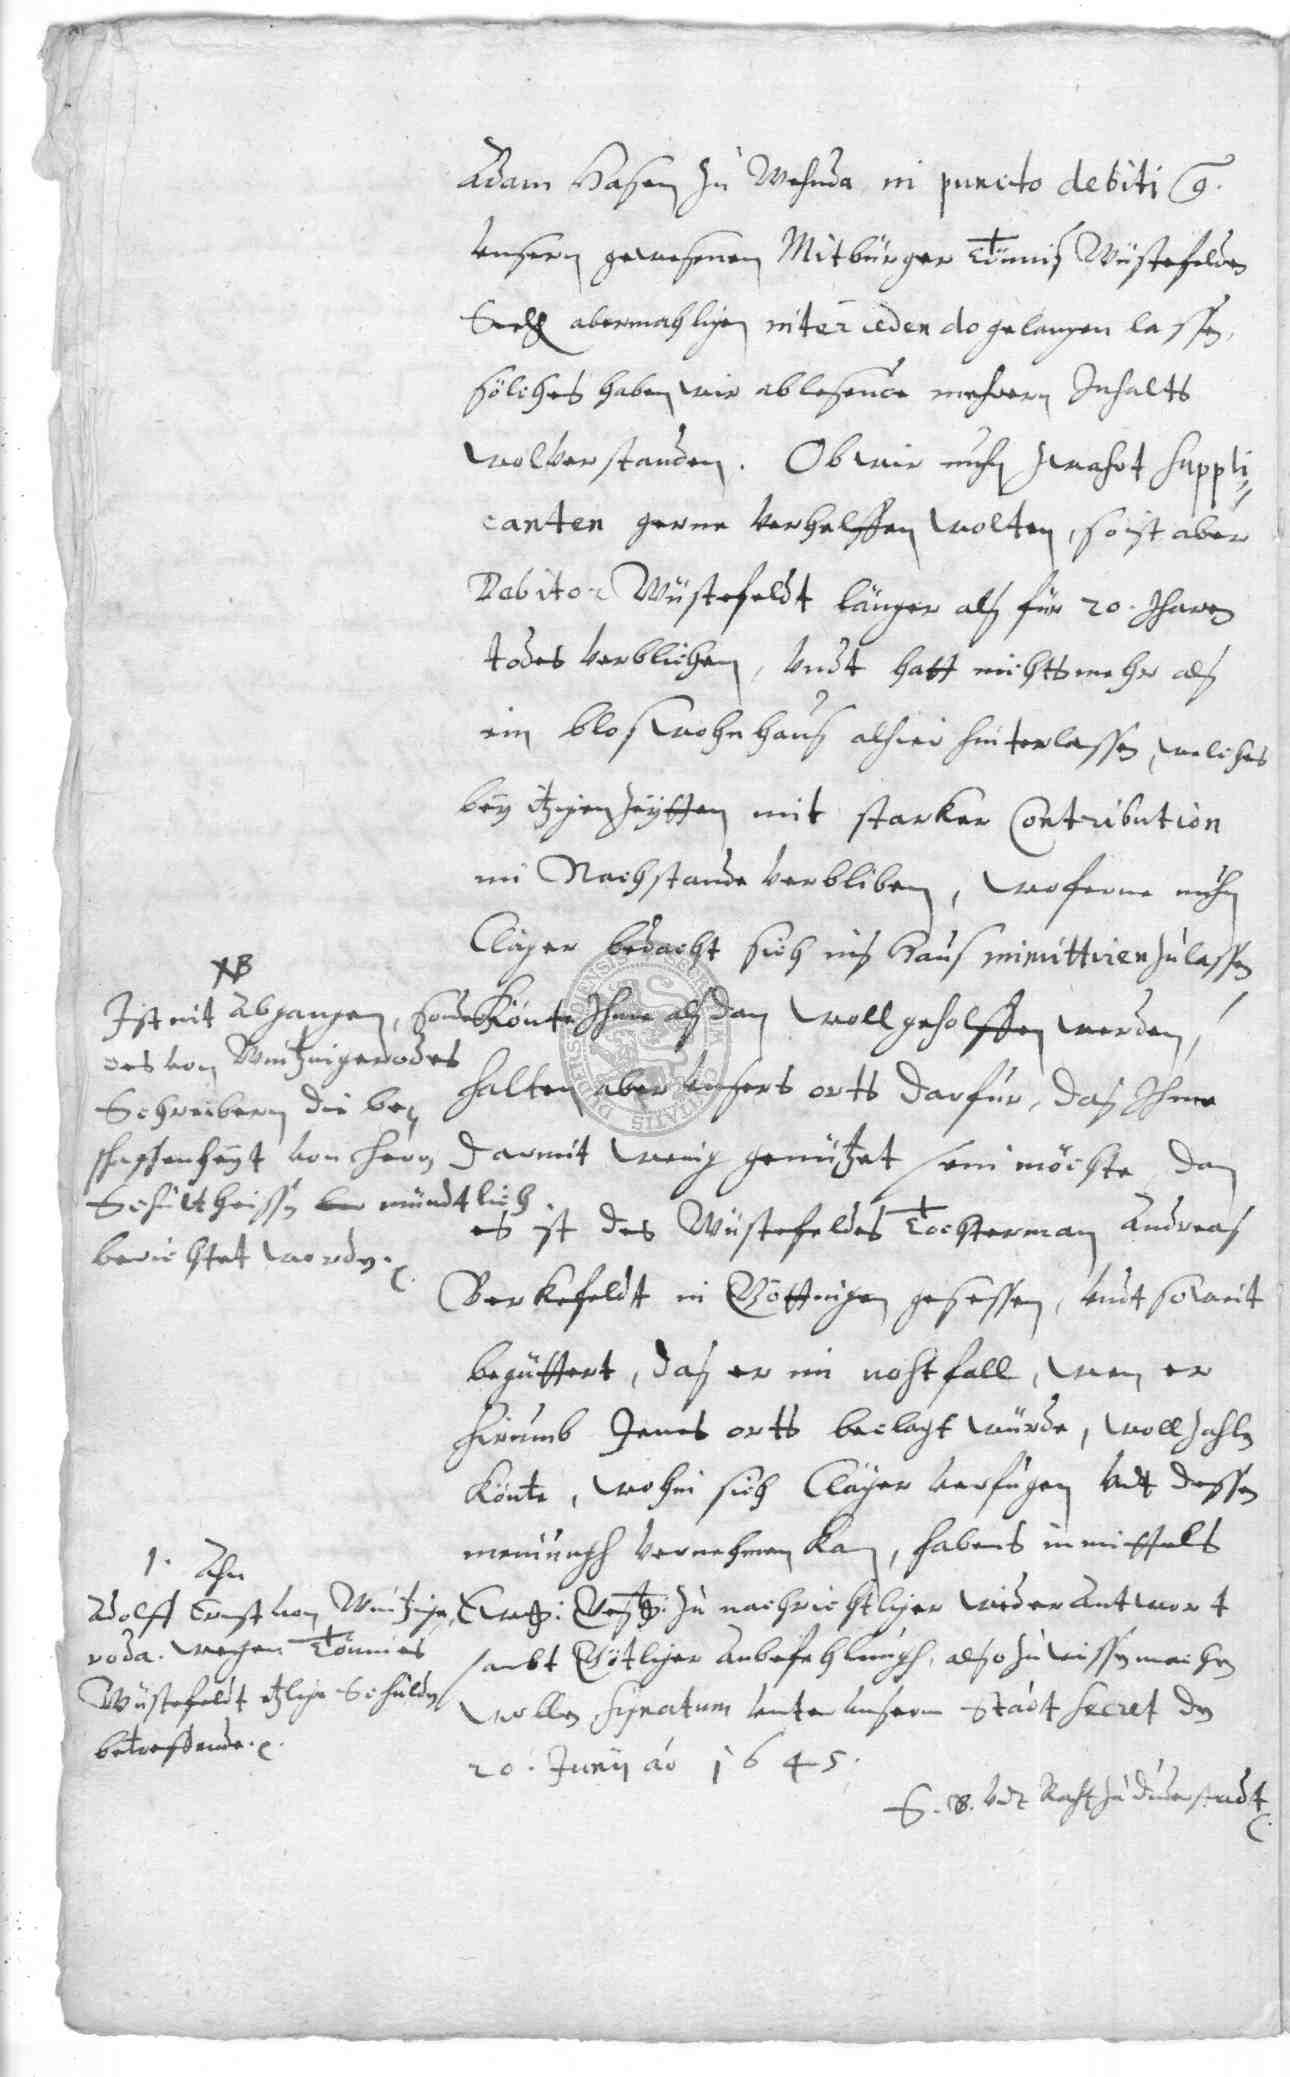 Adam Hasen zu Wehnda in puncto debiti
Unsern gewesenen Mitbürger Tönnis Wüstefelden
Seel. abermahligen intercedendo gelangen lassen,
solches haben wir ablesende mehrern Inhalts
wol verstanden. Ob wir nuhn zwahrt suppli
canten gerne verhelffen wolten, so ist aber
Debitor Wüstefeldt länger als für 20. Jharen
todes verblichen, undt hatt nichts meher als
ein blos wohnhaus alhier hinterlassen, welches
bey itzigen Zeytten mit starker Contribution
im Nachstande verbliben, woferne nuhn
Cläger bedacht sich ins Haus immittiren zu lassen
Könte Ihme als dan woll geholffen werden,
halten aber unsers orts darfür, das Ihme
darmit wenig genützet sein möchte, dan
es ist des Wüstefeldes Tochterman Andreas
Berkefeldt in Göttingen gesessen, undt so weit
begüttert, das er im nohtfall, wen er
hirumb Jenes orts beclagt würde, woll zahlen
Könte, wohin sich Cläger verfügen undt dessen
meinungh vernehmen kan, habens inmittels
zu nachrichtlicher wider Antwort
sambt Götlicher Anbefehlungh, also zu wissen machen
wollen, signatum unter unserm Stadt Secret den
20. Junij ao 1645.
B. undt Raht zu Duderstadt
NB
Ist nit abgangen, sonder
des von Wintzingerodes
Schreibern die be
schaffenheyt von Herrn
Schultheissen mündtlich
berichtet worden.
1. Ahn
Adolff Ernst von Wintzinge
roda. wegen Tönnies
Wüstefeldt etzlige Schulden
betreffende.